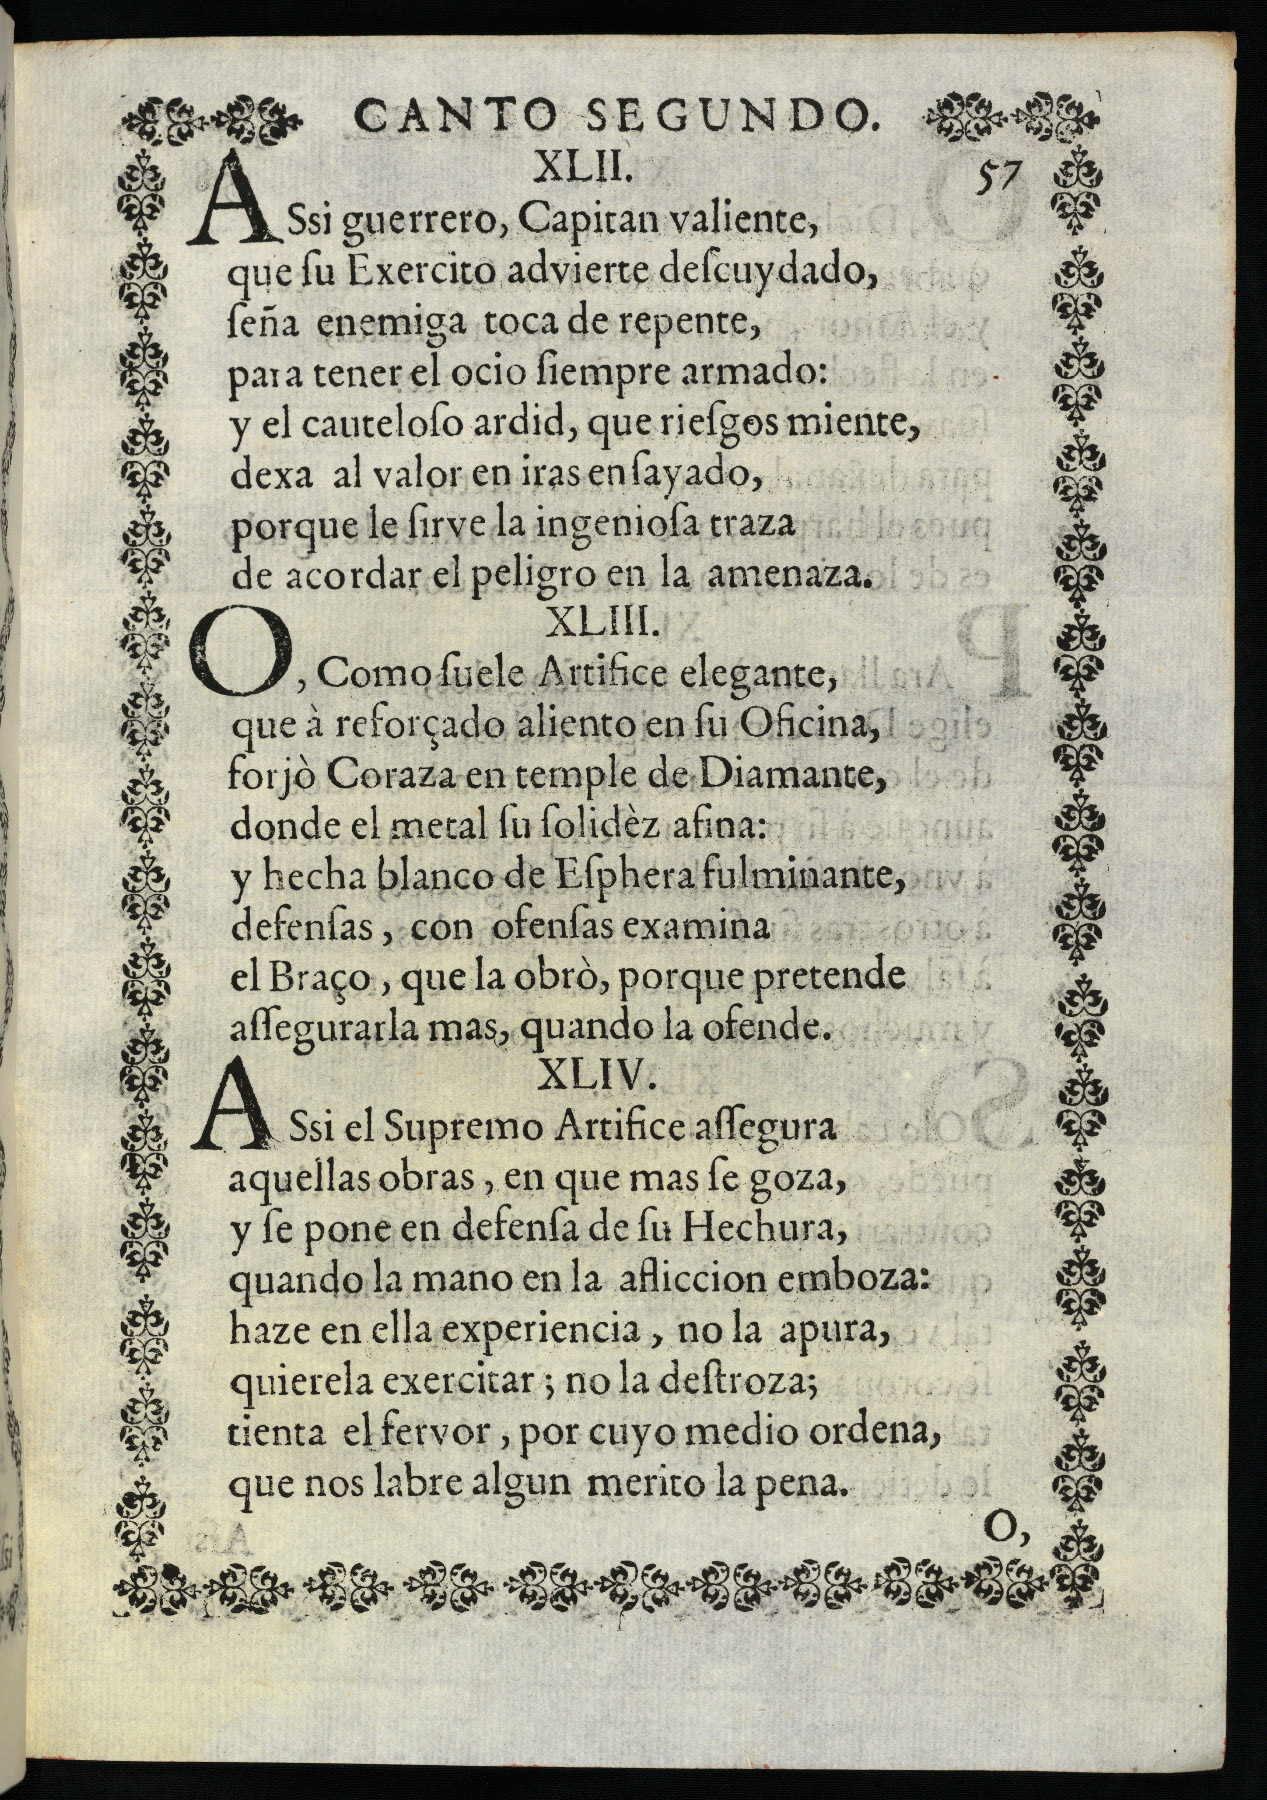 CANTO SEGUNDO.
57
XLII.
ASsi guerrero, Capitan valiente,
que ſu Exercito advierte deſcuydado,
ſeña enemiga toca de repente,
para tener el ocio ſiempre armado:
y el cauteloſo ardid, que rieſgos miente,
dexa al valor en iras enſayado,
porque le ſirve la ingenioſa traza
de acordar el peligro en la amenaza.
XLIII.
O, Como ſuele Artifice elegante,
que à reforçado aliento en ſu Oficina,
forjò Coraza en temple de Diamante,
donde el metal ſu ſolidèz afina:
y hecha blanco de Eſphera fulminante,
defenſas, con ofenſas examina
el Braço, que la obrò, porque pretende
aſſegurarla mas, quando la ofende.
XLIV.
ASsi el Supremo Artifice aſſegura
aquellas obras, en que mas ſe goza,
y ſe pone en defenſa de ſu Hechura,
quando la mano en la afliccion emboza:
haze en ella experiencia, no la apura,
quierela exercitar; no la deſtroza;
tienta el fervor, por cuyo medio ordena,
que nos labre algun merito la pena.
O,